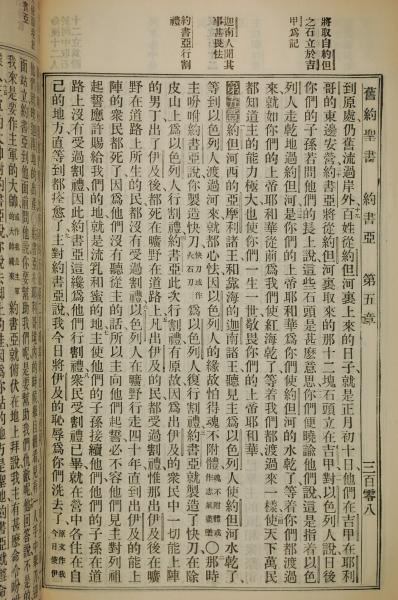 將取自約但
之石立於吉
甲爲記
迦南人聞其
事甚畏怯
約書亞行割
禮
舊約聖書 約書亞 第五章 三百零八
到原處仍舊流過岸外百姓從約但河裏上來的日子就是正月初十日他們在吉甲在耶利
哥的東邊安營約書亞將從約但河裏取來的那十二塊石頭立在吉甲對以色列人說日後
你們的子孫若問他們的長上說這些石頭是甚麼意思你們便曉諭他們說這是指着以色
列人走乾地過約但河是你們的上帝耶和華爲你們使約但河的水乾了等着你們都渡過
來就如你們的上帝耶和華從前爲我們使紅海乾了等着我們都渡過來一樣使天下萬民
都知道主的能力極大也使你們一生一世敬畏你們的上帝耶和華
第五章約但河西的亞摩利諸王和靠海的迦南諸王聽見主爲以色列人使約但河水乾了
等到以色列人渡過河來就都心怯因以色列人的緣故怕得魂不附體魂不附體或作志氣盡喪○那時
主吩咐約書亞說你製造快刀快刀或作火石刀爲以色列人復行割禮約書亞就製造了快刀在除
皮山上爲以色列人行割禮約書亞此次行割禮有原故因爲出伊及的衆民中一切能上陣
的男丁出了伊及後都死在曠野在道路上凡出伊及的民都受過割禮惟那出伊及後在曠
野在道路上所生的民都沒有受過割禮以色列人在曠野行走四十年直到出伊及的能上
陣的衆民都死了因爲他們沒有聽從主的話所以主向他們起誓必不容他們見主對列祖
起誓應許賜給我們的地就是流乳和蜜的地主使他們的子孫接續他們他們的子孫在道
路上沒有受過割禮因此約書亞這纔爲他們行割禮衆民受割禮已畢就在營中各住在自
己的地方直等到都痊愈了主對約書亞說我今日將伊及的恥辱爲你們洗去了原文作我今日使伊